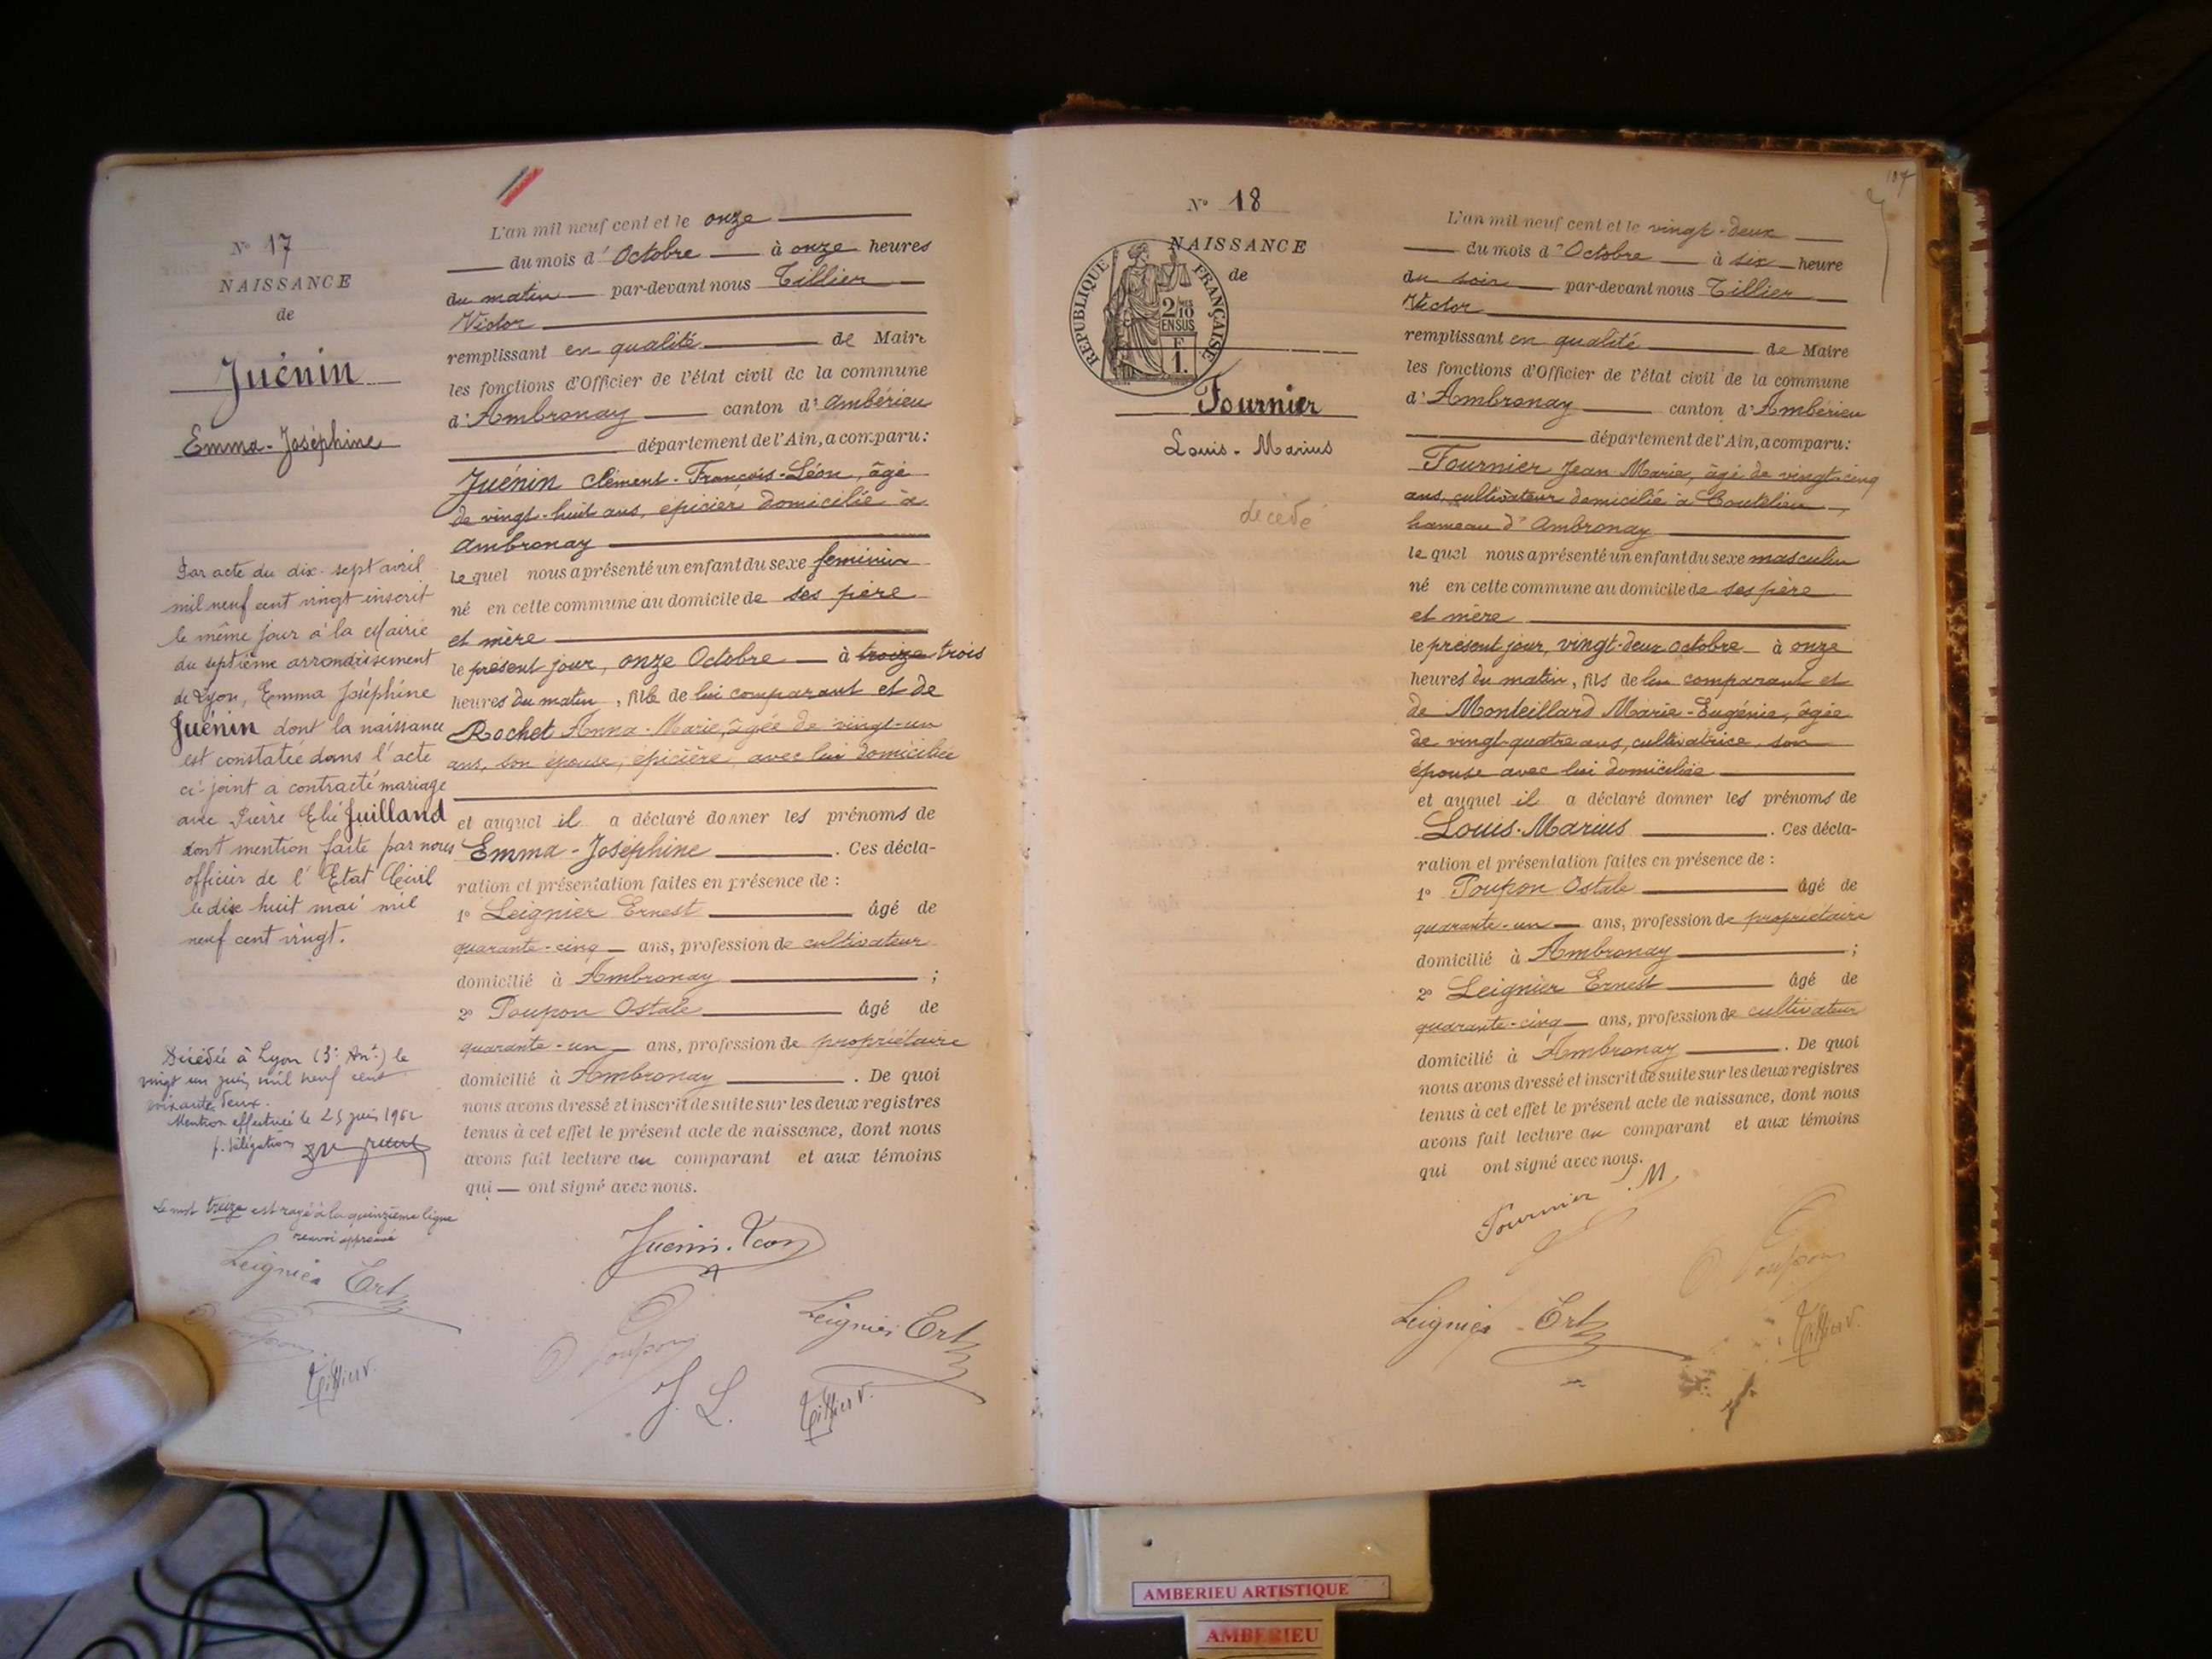 N° 17
NAISSANCE
de
Juénin
Emma-Joséphine
Par acte du dix-sept avril
mil neuf cent vingt inscrit
le même jour à la Mairie
du septième arrondissement
de Lyon, Emma Joséphine
Juénin dont la naissance
est constatée dans l'acte
ci-joint a contracté mariage
avec Pierre Elie Juilland
dont mention faite par nous
officier de l'Etat Civil
le dix huit mai mil
neuf cent vingt.
Décédée à Lyon (3e Arrt) le
vingt un juin mil neuf cent
soixante deux.
Mention effectuée le 25 juin 1962
p. délégation
Le mot treize est rayé à la quinzième ligne
renvoi approuvé
Leignier Ert
O Poupon
Tillier V.
L'an mil neuf cent et le onze
du mois d'Octobre à onze heures
du matin par-devant nous Tillier
Victor
remplissant en qualité de Maire
les fonctions d'Officier de l'état civil de la commune
d'Ambronay canton d'Ambérieu
département de l'Ain, a comparu:
Juénin Clément-François-Léon, âgé
de vingt-huit ans, épicier domicilié à
Ambronay
lequel nous a présenté un enfant du sexe féminin
né en cette commune au domicile de ses père
et mère
le présent jour, onze Octobre à treize trois
heures du matin, fille de lui comparant et de
Rochet Anna-Marie, âgée de vingt-un
ans, son épouse, épicière, avec lui domiciliée
et auquel il a déclaré donner les prénoms de
Emma-Joséphine. Ces décla-
ration et présentation faites en présence de :
1° Leignier Ernest âgé de
quarante-cinq ans, profession de cultivateur
domicilié à Ambronay ;
2° Poupon Ostale âgé de
quarante-un ans, profession de propriétaire
domicilié à Ambronay. De quoi
nous avons dressé et inscrit de suite sur les deux registres
tenus à cet effet le présent acte de naissance, dont nous
avons fait lecture au comparant et aux témoins
qui — ont signé avec nous.
Juénin Léon
O Poupon
Leignier Ert
J. L.
Tillier V.
107
N° 18
NAISSANCE
de
RÉPUBLIQUE FRANÇAISE
2/10
EN SUS
F
1.
Fournier
Louis-Marius
décédé
L'an mil neuf cent et le vingt-deux
du mois d'Octobre à six heure
du soir par-devant nous Tillier
Victor
remplissant en qualité de Maire
les fonctions d'Officier de l'état civil de la commune
d'Ambronay canton d'Ambérieu
département de l'Ain, a comparu:
Fournier Jean Marie, âgé de vingt-cinq
ans, cultivateur domicilié à Coutelieu,
hameau d'Ambronay
lequel nous a présenté un enfant du sexe masculin
né en cette commune au domicile de ses père
et mère
le présent jour, vingt-deux octobre à onze
heures du matin, fils de lui comparant et
de Monteillard Marie-Eugénie, âgée
de vingt-quatre ans, cultivatrice son
épouse avec lui domiciliée
et auquel il a déclaré donner les prénoms de
Louis-Marius. Ces décla-
ration et présentation faites en présence de :
1° Poupon Ostale âgé de
quarante-un ans, profession de propriétaire
domicilié à Ambronay ;
2° Leignier Ernest âgé de
quarante-cinq ans, profession de cultivateur
domicilié à Ambronay. De quoi
nous avons dressé et inscrit de suite sur les deux registres
tenus à cet effet le présent acte de naissance, dont nous
avons fait lecture au comparant et aux témoins
qui ont signé avec nous.
Fournier J. M
O Poupon
Leignier Ert
Tillier V.
AMBERIEU ARTISTIQUE
AMBERIEU